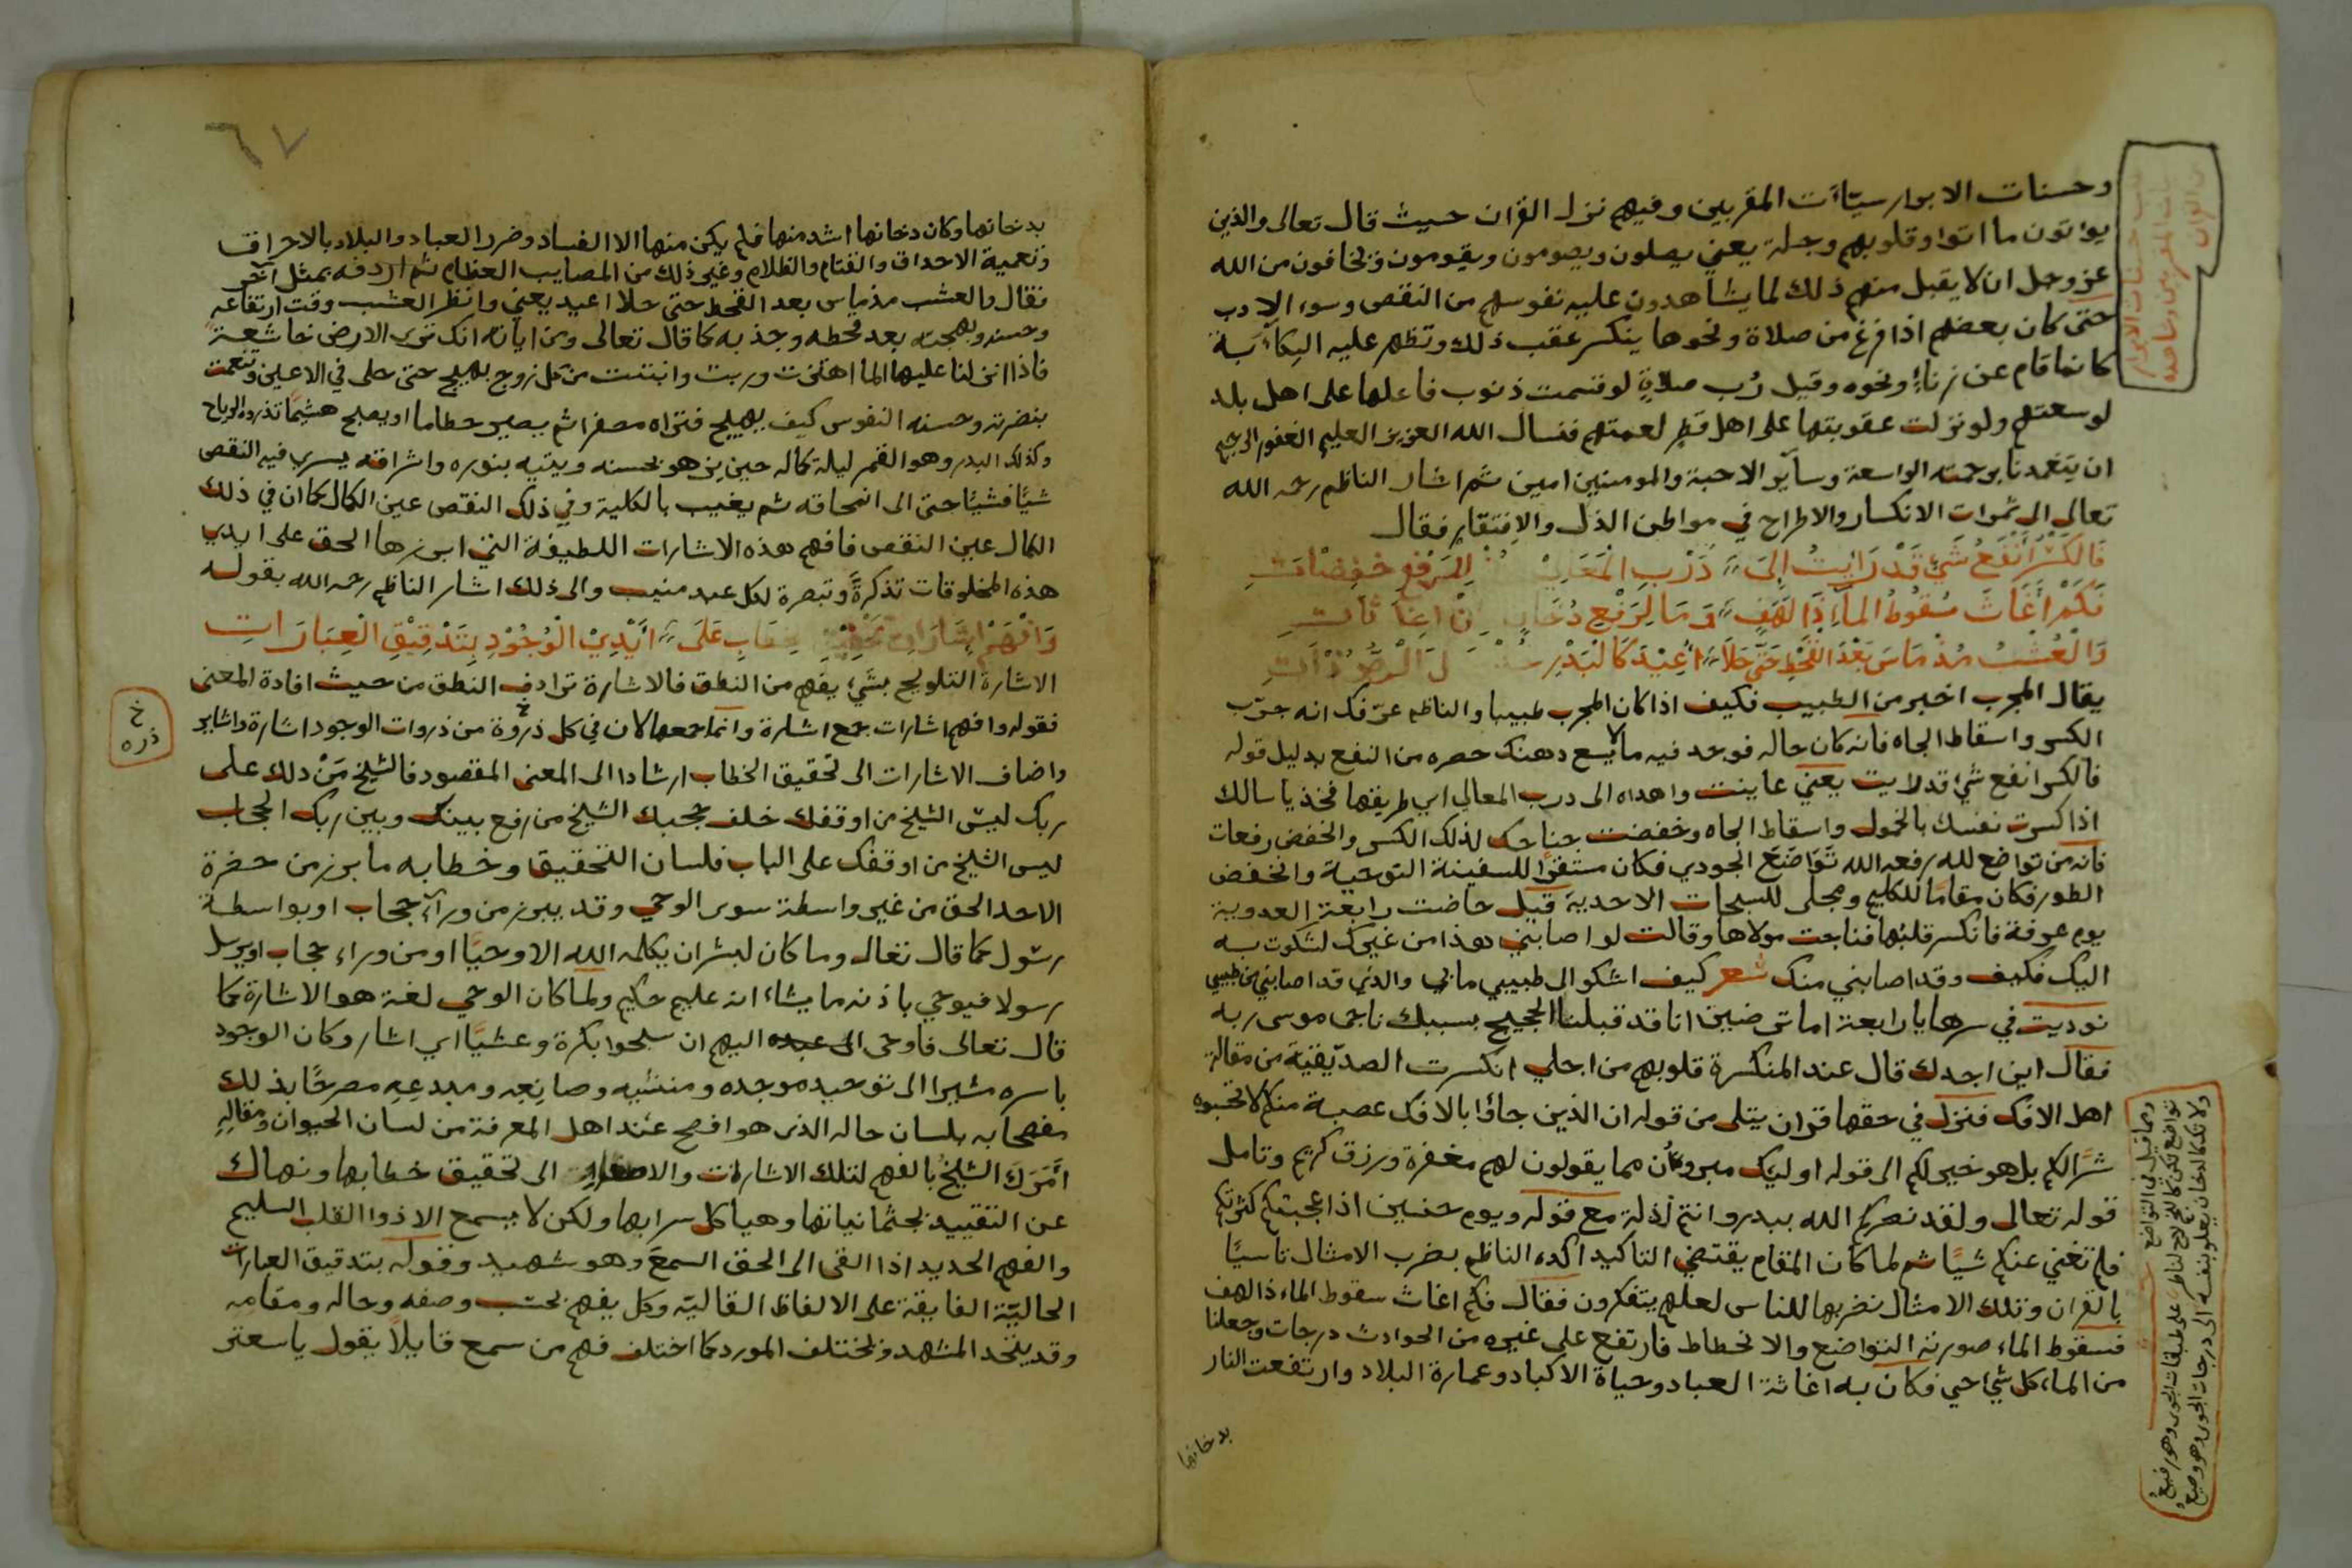 وحسنات الابرار سيّاَت المقربين وفيهم نزل القران حيث قال تعالى والذين
يواتون ما اتوا وقلوبهم وجلة يعني يصلون ويصومون ويقومون ويخافون من الله
عز وجل ان لا يقبل منهم ذلك لما يشاهدون عليه نفوسهم من النقص وسوء الادب
حتى كان بعضهم اذا فرغ من صلاة ونحوها ينكسر عقب ذلك وتظهر عليه الكآبة
كانما قام عن زناءٍ ونحوه وقيل رُب صلاةٍ لو قسمت ذنوب فاعلها على اهل بلد
لوسعتهم ولو نزلت عقوبتها على اهل قطر لعمتهم فنسال الله العزيز العليم الغفور الرحيم
ان يتغمدنا برحمته الواسعة وسآير الاحبة والمومنين امين ثم اشار الناظم رحمه الله
تعالى الى ثمرات الانكسار والاطراح في مواطن الذل والافتقار فقال
فَالكَسْرُ أَنْفَعُ شَيْءٍ قَدْ رَايْتُ اِلَى دَرْبِ الْمَعَالِي للرَفْعِ خَفِضَاتِ
فَكَمْ أَغَاثَ سُقُوطُ المآءِ ذَا لَهَفٍ وَمَا لِرَفْعِ دُخَانٍ اِغَاثَاتِ
وَالْعُشْبُ مُذْ مَاسَ بَعْدَ القَحْطِ حَتَّى حَلاَ أُعِيْدَ كَالْبَدْرِ
يقال المجرب اخبر من الطبيب فكيف اذا كان المجرب طبيبا والناظم عرّفك انه جرّب
الكسر واسقاط الجاه فانه كان حاله فوجد فيه ما لا يسع ذهنك حصره من النفع بدليل قوله
فالكسر انفع شيء قد رايت يعني عاينت واهداه الى درب المعالي اي طريقها فخذ يا سالك
اذا كسرت نفسك بالخمول واسقاط الجاه وخفضت جناحك لذلك الكسر والخفض رفعات
فانه من تواضع لله رفعه الله تَوَاضَعَ الجودي فكان مستقرا للسفينة النوحية وانخفض
الطور فكان مقامًا للكليم ومجلى للسبحات الاحدية قيل حاضت رابعة العدوية
يوم عرفة فانكسر قلبُها فناجت مولاها وقالت لو اصابني هذا من غيرك لشكوت به
اليك فكيف وقد اصابني منك شعر كيف اشكو الى طبيبي ما بي والذي قد اصابني من طبيبي
نوديت في سرها يا رابعة اما ترضين انا قد قبلنا الحجيج بسببك ناجى موسى ربه
فقال اين اجدك قال عند المنكسرة قلوبهم من اجلي انكسرت الصدّيقية من مقالة
اهل الافك فنزل في حقها قران يتلى من قوله ان الذين جاؤا بالافك عصبة منكم لا تحسبوه
شرًا لكم بل هو خير لكم الى قوله اوليك مبروءُن مما يقولون لهم مغفرة ورزق كريم وتامل
قوله تعالى ولقد نصركم الله ببدر وانتم اذلة مع قوله ويوم حنين اذ اعجبتكم كثرتكم
فلم تغني عنكم شيًا ثم لما كان المقام يقتضي التاكيد اكده الناظم بضرب الامثال تاسيًا
بالقران وتلك الامثال نضربها للناس لعلهم يتفكرون فقال فكم اغاث سقوط الماء ذا لهف
فسقوط الماء صورته التواضع والانحطاط فارتفع على غيره من الحوادث درجات وجعلنا
من الماء كل شيء حي فكان به اغاثة العباد وحياة الاكباد وعمارة البلاد وارتفعت النار
بدخانها
ومما قيل في التواضع
تواضع تكن كالنجم لاح لناظر على طبقات الجو وهو رفيعُ
ولا تك كالدخان يعلو بنفسه الى درجات الجو وهو وضيعُ
٦٧
بدخانها وكان دخانها اشد منها فلم يكن منها الا الفساد وضرر العباد والبلاد بالاحراق
وتعمية الاحداق والقتام والظلام وغير ذلك من المصايب العظام ثم اردفه بمثل آخر
فقال والعشب مذ ماس بعد القحط حتى حلا اعيد يعني وانظر العشب وقت ارتفاعه
وحسنه وبهجته بعد قحطه وجذبه كما قال تعالى ومن اياته انك ترى الارض خاشعة
فاذا انزلنا عليها الما اهتزت وربت وانبتت من كل زوج بهيج حتى حلى في الاعين وتنعمت
بنضرته وحسنه النفوس كيف يهيج فتراه مصفرا ثم يصير حطاما او يصبح هشيمًا تذروه الرياح
وكذلك البدر وهو القمر ليلة كماله حين يزهو بحسنه ويتيه بنوره واشراقه يسري فيه النقص
شيًا فشيًا حتى الى انمحاقه ثم يغيب بالكلية وفي ذلك النقص عين الكمال كما ان في ذلك
الكمال عين النقص فافهم هذه الاشارات اللطيفة التي ابرزها الحق على ايدي
هذه المخلوقات تذكرةً وتبصرة لكل عبد منيب والى ذلك اشار الناظم رحمه الله بقوله
وَافْهَمْ اِشَارَاتِ تَحْقِيْقِ الخِطَابِ عَلَى أَيْدِيْ الْوُجُوْدِ بِتَدْقِيْقِ الْعِبَارَاتِ
الاشارة التلويح بشيءٍ يفهم من النطق فالاشارة ترادف النطق من حيث افادة المعنى
فقوله وافهم اشارات جمع اشارة وانما جمعها لان في كل ذروة من ذروات الوجود اشارة واشاير
خ
ذره
واضاف الاشارات الى تحقيق الخطاب ارشادا الى المعنى المقصود فالشيخ مَنْ دلك على
ربك ليس الشيخ من اوقفك خلف حجبك الشيخ من رفع بينك وبين ربك الحجاب
ليس الشيخ من اوقفك على الباب فلسان التحقيق وخطابه ما برز من حضرة
الاحد الحق من غير واسطة سوى الوحي وقد يبرز من ورآءِ حجاب او بواسطة
رسول كما قال تعالى وما كان لبشر ان يكلمه الله الا وحيًا او من وراء حجاب او يرسل
رسولا فيوحي باذنه ما يشاء انه عليم حكيم ولما كان الوحي لغة هو الاشارة كما
قال تعالى فاوحى اليهم ان سبحوا بكرة وعشيًا اي اشار وكان الوجود
باسره مشيرا الى توحيد موجده ومنشئيه وصانِعِه ومبدعِهِ مصرحًا بذلك
مفصحا به بلسان حاله الذى هو افصح عند اهل المعرفة من لسان الحيوان ومقالِهِ
أَمَرَك الشيخ بالفهم لتلك الاشارات والاصغاء الى تحقيق خطابها ونهاك
عن التقييد بجثمانياتها وهياكل سرابها ولكن لا يسمح الا ذوا القلب السليم
والفهم الحديد اذا القى الى الحق السمعَ وهو شهيد وقوله بتدقيق العبارات
الحاليّة الفايقة على الالفاظ القاليّه وكل يفهم بحسب وصفه وحاله ومقامه
وقد يتحد المشهد ويختلف المورد كما اختلف فهم من سمع قايلاً يقول يا سعتر